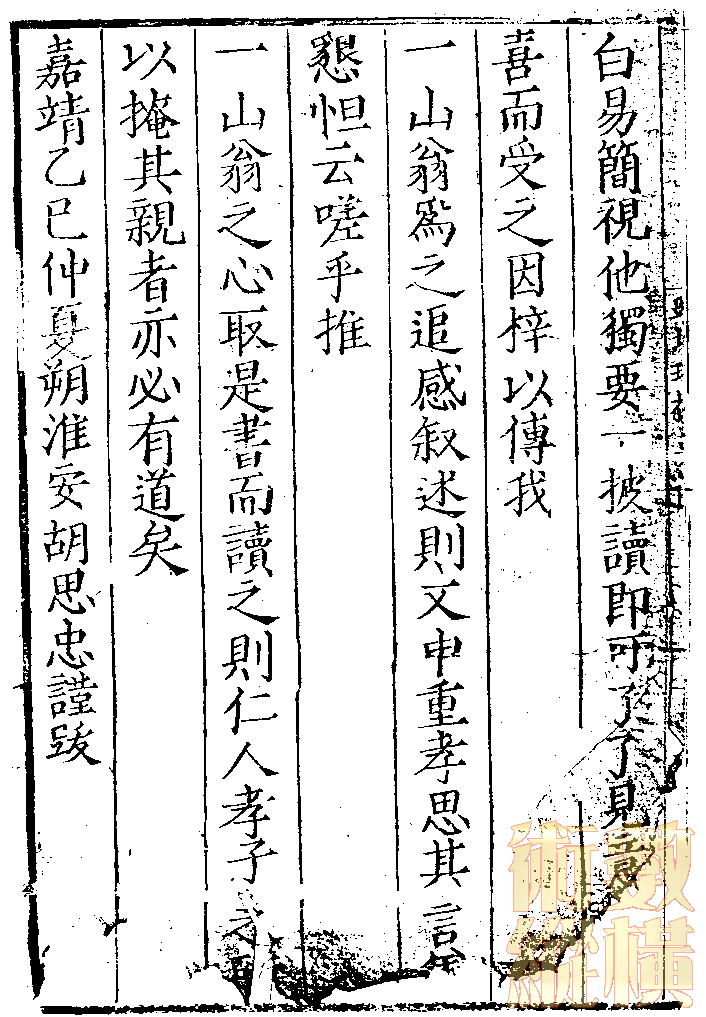 白易簡視他獨要一披讀即可了了見意
喜而受之因梓以傳我
一山翁爲之追感叙述則文申重孝思其言
懇怛云嗟乎推
一山翁之心取是書而讀之則仁人孝子之
以掩其親者亦必有道矣
嘉靖乙巳仲夏朔淮安胡思忠謹跋
數術縱橫